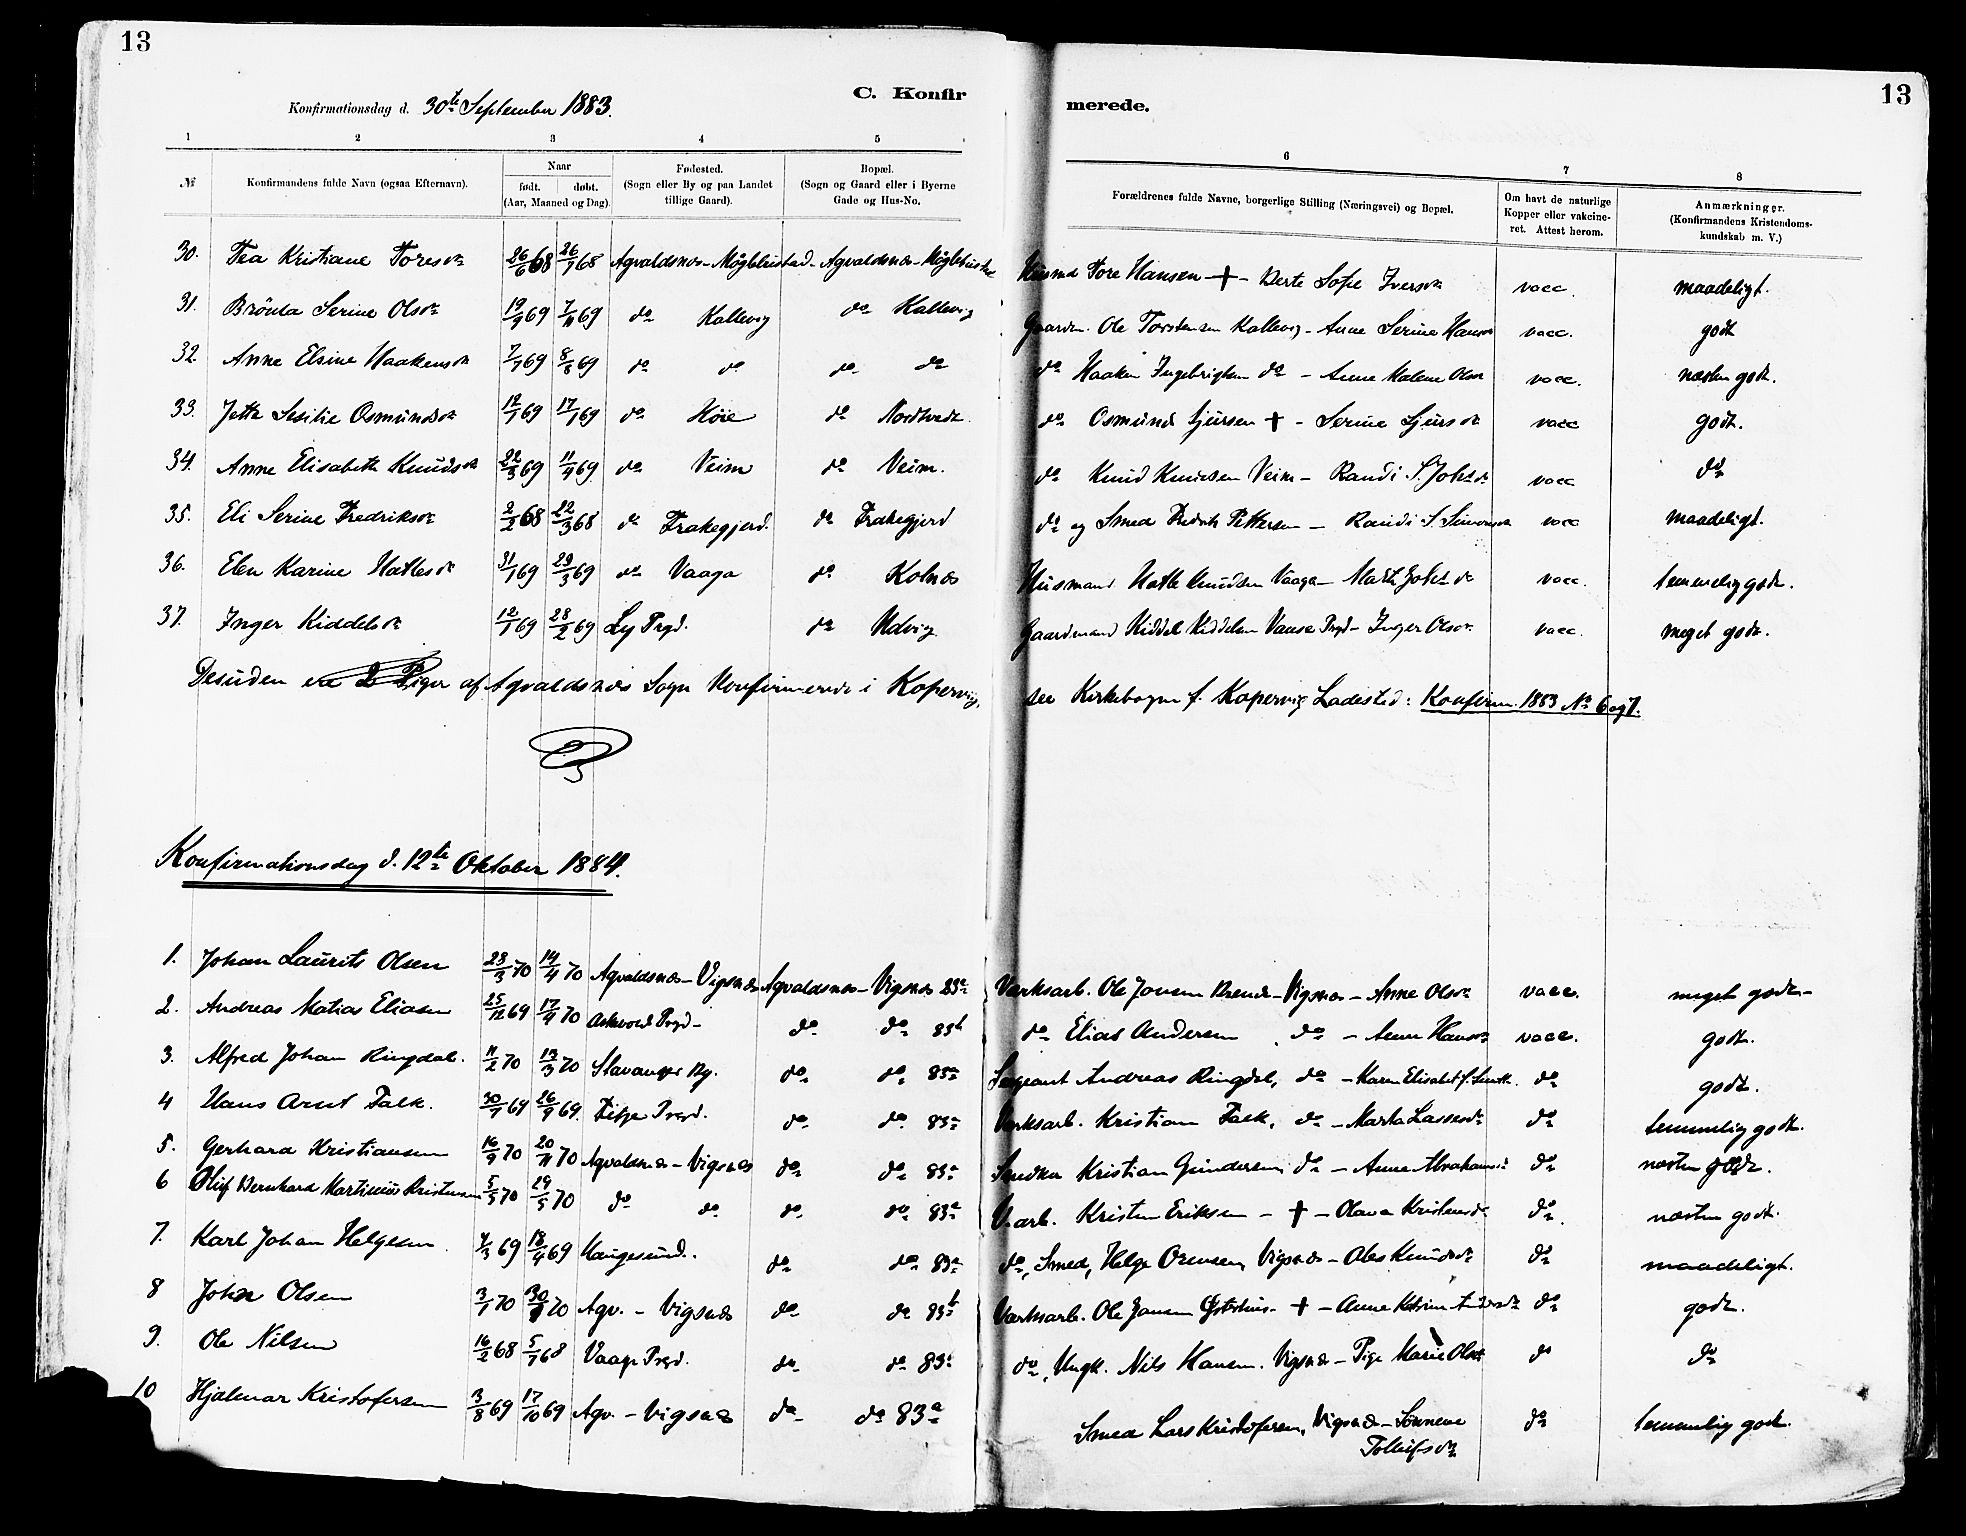 13
13
Konfirmationsdag d. 30te September 1883.
C. Konfir
merede.
1 2 3 4 5 6 7 8
№ Konfirmandens fulde Navn (ogsaa Efternavn). Naar født. døbt. (Aar, Maaned og Dag). Fødested. (Sogn eller By og paa Landet tillige Gaard). Bopæl. (Sogn og Gaard eller i Byerne Gade og Hus-No. Forældrenes fulde Navne, borgerlige Stilling (Næringsvei) og Bopæl. Om havt de naturlige Kopper eller vakcineret. Attest herom. Anmærkninger. (Konfirmandens Kristendomskundskab m. V.)
30. Tea Kristiane Toresdr 26/6 68 26/7 68 Agvaldsnes - Agvaldsnes - Husmd Tore Hansen + - Berte Sofie Iversdr vacc. maadeligt.
31. Brönla Serine Olsdr 19/9 69 7/11 69 do Kallevig do Kallevig Gaardm. Ole Torstensen Kallevig - Anne Serine Hansdr vacc. godt
32. Anne Elsine Haakensdr 7/7 69 8/8 69 do do do do do Haaken Ingebrigtsen do - Anne Malene Olsdr vacc. næsten godt.
33. Jette Sesilie Osmundsdr 12/7 69 17/ 69 do Höie do Nordtvedt do Osmund Sjursen + - Serine Sjursdr vacc godt.
34. Anne Elisabeth Knudsdr 22/3 69 11/4 69 do Veim do Veim. do Knud Knudsen Veim - Randi S. Johsdr vacc do
35. Eli Serine Fredriksdr 2/2 68 22/3 68 do Frakegjerd. do Frakegjerd do og Smed Fredrik Pettersen - Randi S. Simonsdr vacc maadeligt.
36. Elen Karine Hatlesdr 31/1 69 29/3 69 do Vaaga do Kolnes Husmand Hatle Knudsen Vaaga - Marta Johsdr vacc. temmelig godt.
37. Inger Kiddelsdr 12/1 69 28/2 69 Ly Prgd. do Udvig Gaardmand Kiddel Kiddelsen Vanse Prgd - Inger Olsdr vacc. meget godt.
Desuden ere 2 Piger af Agvaldsnes Sogn Konfirmerede i Kopervig, see Kirkebogen f. Kopervig Ladested: Konfirm. 1883 No 6 og 7.
Konfirmationsdag d. 12te Oktober 1884.
1. Johan Laurits Olsen 23/3 70 14/4 70 Agvaldsnes - Vigsnes Agvaldsnes - Vigsnes 83a Værksarb. Ole Jonsen Vigsnes - Anne Olsdr vacc. meget godt
2. Andreas Matias Eliasen 25/12 69 17/4 70 Askvold Prgd - do do 83b do Elias Andersen do - Anne Hansdr vacc. godt.
3. Alfred Johan Ringdal. 11/2 70 13/3 70 Stavanger By. do do 83a Sergeant Andreas Ringdal, do - Karen Elisabet f. Smith. do godt.
4 Hans Arnt Falk. 30/7 69 26/9 69. Fitje Prgd. do do 83a Værksarb. Kristian Falk, do - Marta Larsdr do temmelig godt.
5. Gerhard Kristiansen 16/9 70 20/11 70 Agvaldsnes - Vigsnes do do 83a Snedker Kristian Gundersen, do - Anne Abrahamsdr do næsten godt.
6 Oluf Bernhard Martinius Kristensen 5/5 70 29/5 70 do do do do 83a V.arb. Kristen Eriksen - + - Olava Kristensdr do næsten godt.
7. Karl Johan Helgesen 7/3 69 18/4 69 Haugesund. do do 83a do, Smed, Helge Orensen, Vigsnes - Knudsdr do maadeligt.
8 Johan Olsen 3/1 70 30/ 70 Agv. - Vigsnes do do 83b Værksarb. Ole Jansen Østerhus - + - Anne Katrine Andersdr do godt.
9. Ole Nilsen 16/2 68 5/7 68 Vaage Prgd. do do 83 do, Ungk. Nils Hansen. Vigsnes - Pige Marie Olsdr do do
10 Hjalmar Kristofersen 3/8 69 17/10 69 Agv. - Vigsnes do do 83a Smed Lars Kristofersen, Vigsnes - Sønneve Tollefsdr do temmelig godt.